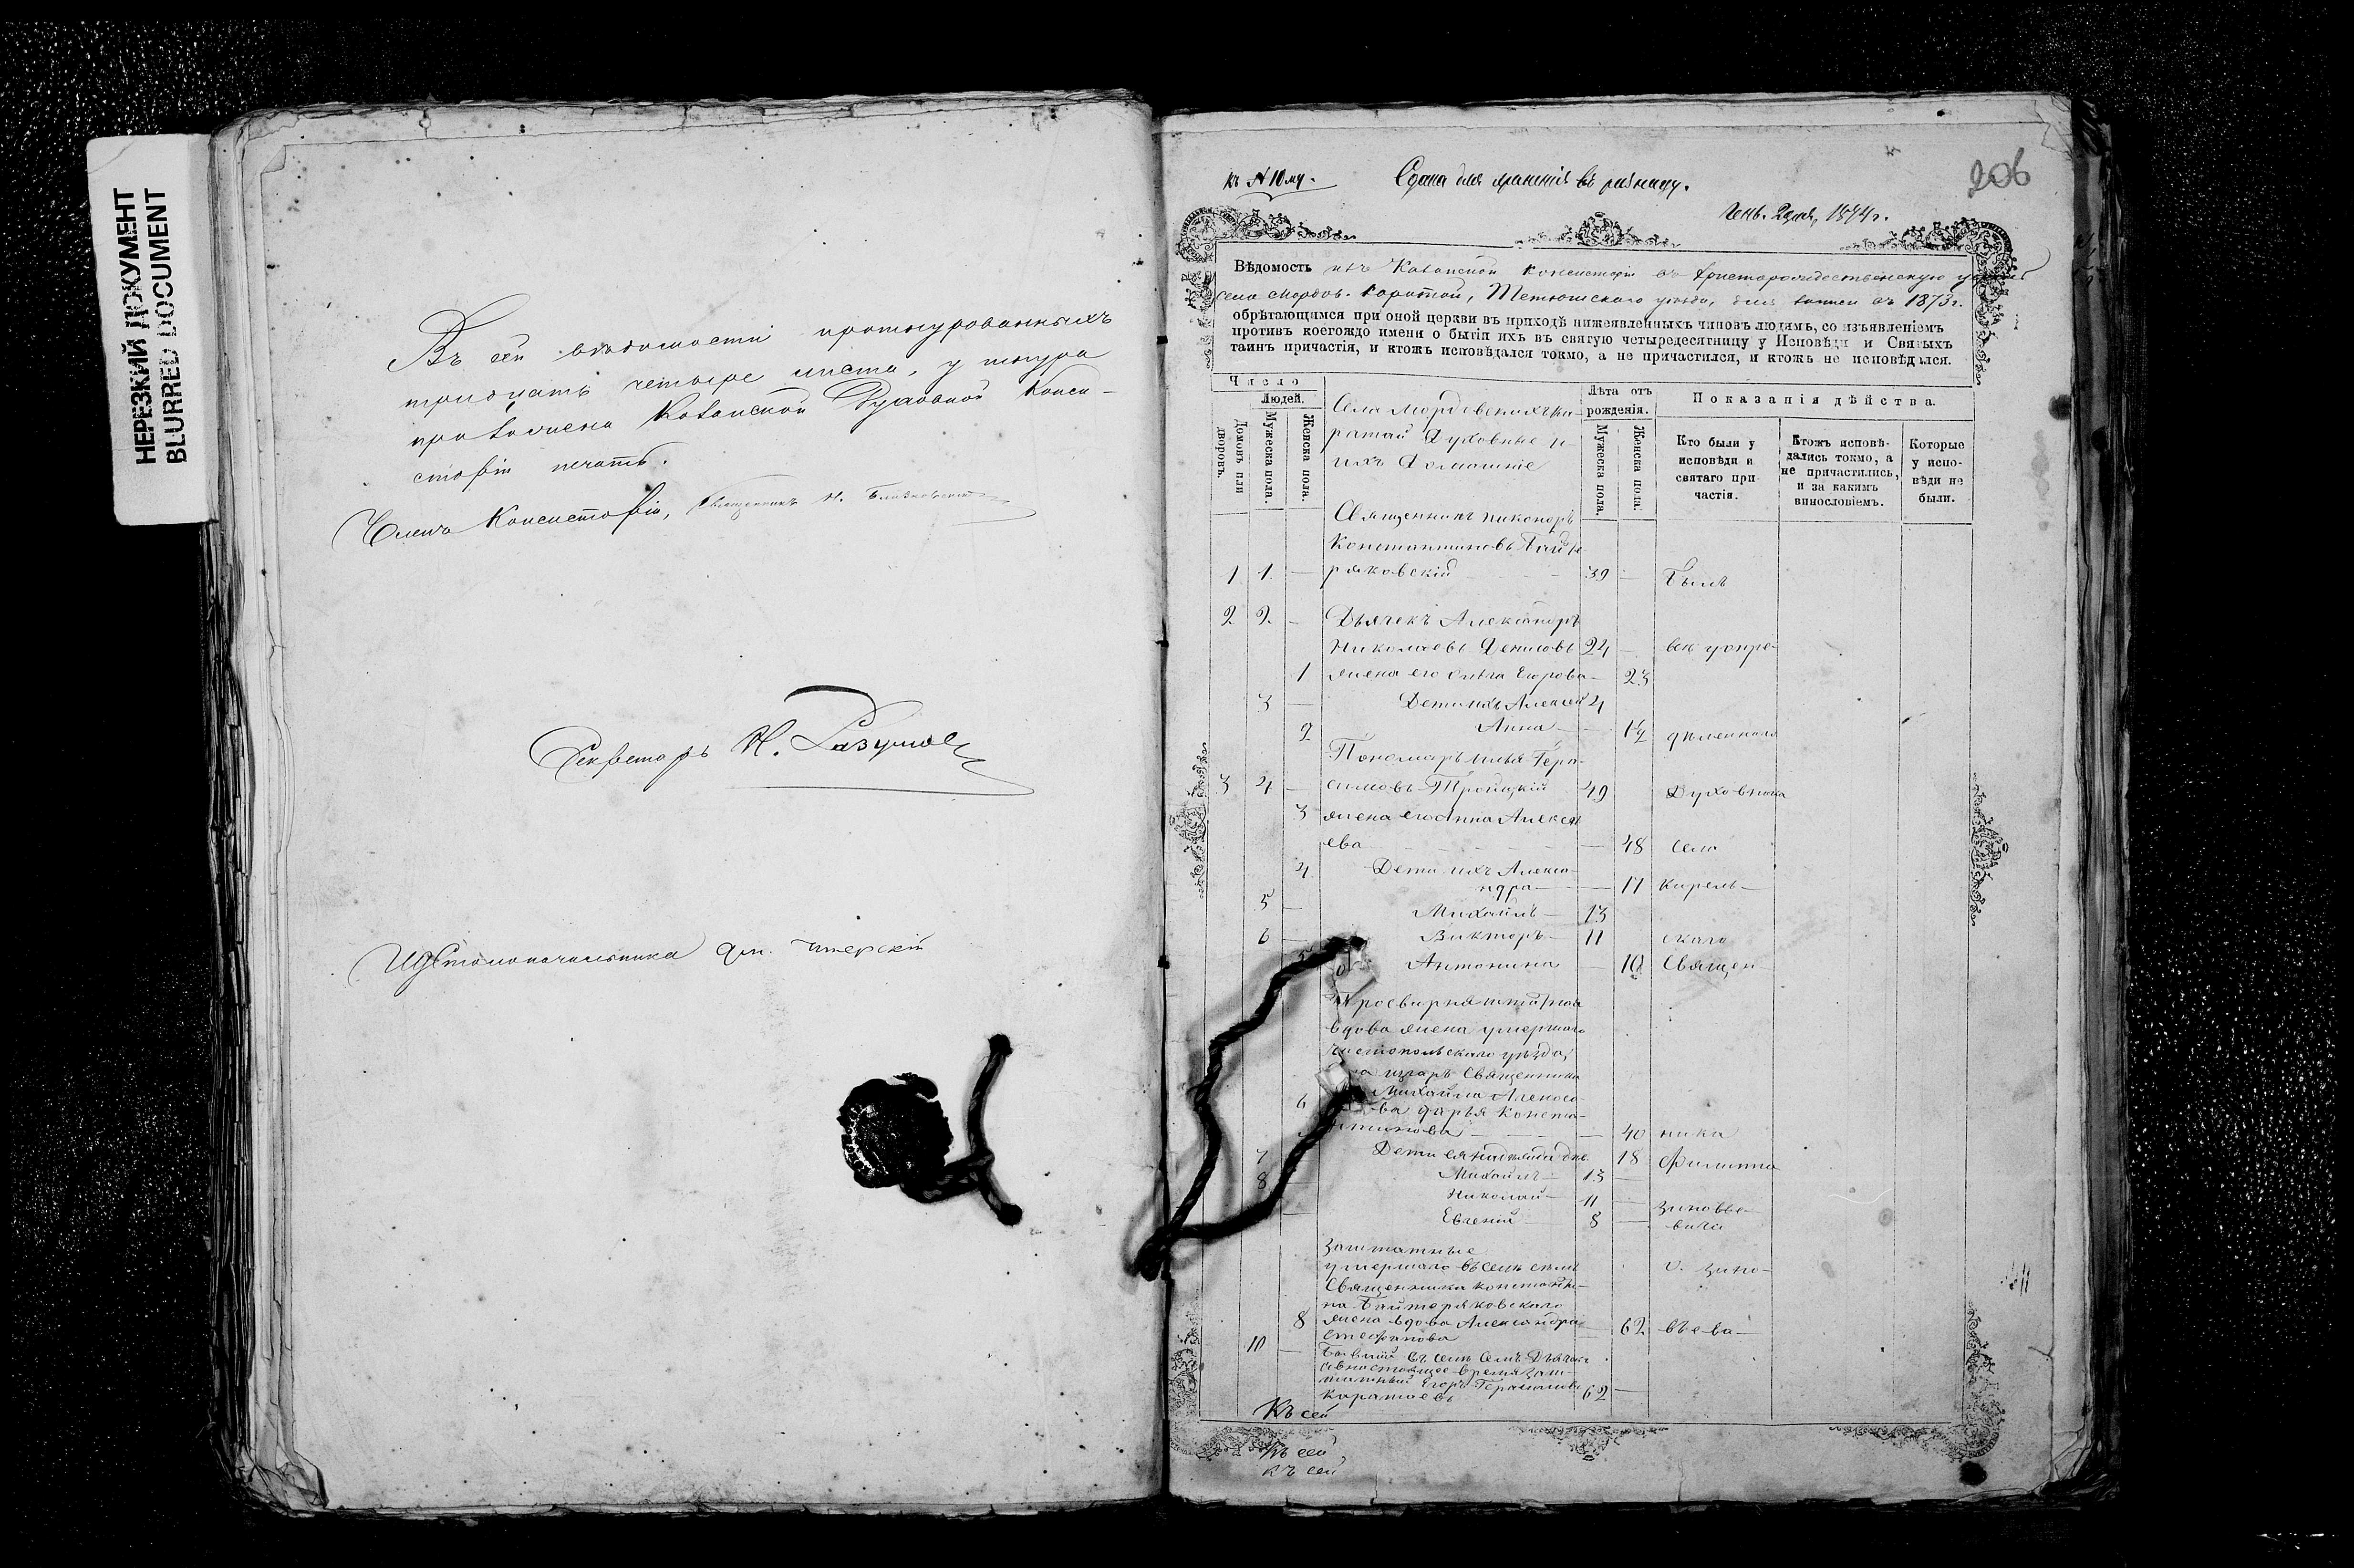 НЕРЕЗКИЙ ДОКУМЕНТ
BLURRED DOCUMENT
Въ сей вѣдомости прошнурованныхъ
тридцать четыре листа, у шнура
приложена Казанской Духовной Конси-
сторіи печать.
Членъ Консисторіи, Священникъ Н.
Секретарь Н. Разумов
Столоначальника
206
къ № 10му.
Сдана для храненія въ ризницу.
1874г.
Вѣдомость изъ Казанской Консисторіи въ Христорождественскую церковь
села Мордов. Каратай, Тетюшскаго уѣзда, для записи въ 1873г.
обрѣтающимся при оной церкви въ приходѣ нижеявленныхъ чиновъ людямъ, со изъявленіемъ
противъ коегождо имени о бытіи ихъ въ святую четыредесятницу у Исповѣди и Святыхъ
таинъ причастія, и ктожъ исповѣдался токмо, а не причастился, и ктожъ не исповѣдался.
Число
Домовъ или дворовъ.
Людей.
Мужеска пола.
Женска пола.
Села Мордовскихъ Ка-
ратай Духовные и
ихъ Домашніе
Лѣта отъ рожденія.
Мужеска пола.
Женска пола.
Показанія дѣйства.
Кто были у исповѣди и святаго причастія.
Ктожъ исповѣдались токмо, а не причастились, и за какимъ винословіемъ.
Которые у исповѣди не были.
Священникъ Никаноръ
Константиновъ Байте-
1 1 — ряковскій 39 — Былъ
2 2 — Дьячекъ Александръ
Николаевъ Денисовъ 24 — вси у опре-
1 жена его Ольга Егорова — 23
3 — Дети ихъ Алексей 4
2 Анна — 1½ дѣленнаго
Пономарь Илья Гера-
3 4 — симовъ Троицкій 49 Духовника
3 жена его Анна Алексѣ
ева — 48 села
4 Дети ихъ Алекса-
ндра — 17 Кирель-
5 — Михаилъ — 13
6 — Викторъ — 11 скаго
5 Антонина — 10 Священ-
Просвирня штатная
вдова жена умершаго
Чистопольскаго уѣзда,
Священника
Михаила Алексѣ-
6 ва Дарья Конста-
нтинова — 40 ника
7 Дети ея Надежда 18 Филиппа
8 Михаилъ — 13 —
Николай — 11 — Зиновье-
— Евгений — 8 — вича
Заштатные
умершаго въ семъ селѣ о. Зино-
Священника Константи-
на Байтеряковскаго
8 жена вдова Александра 62 вьева
Стефанова
10 — Бывшій въ семъ селѣ Дьячекъ
въ настоящее время заш-
татный Егоръ Герасимовъ
Каратаевъ 62 —
Къ сей
Къ сей
Къ сей